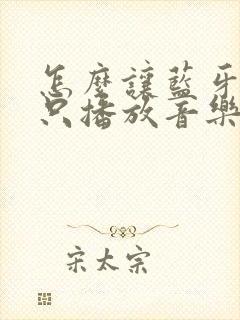 怎麼讓藍牙
只播放音樂
宋太宗